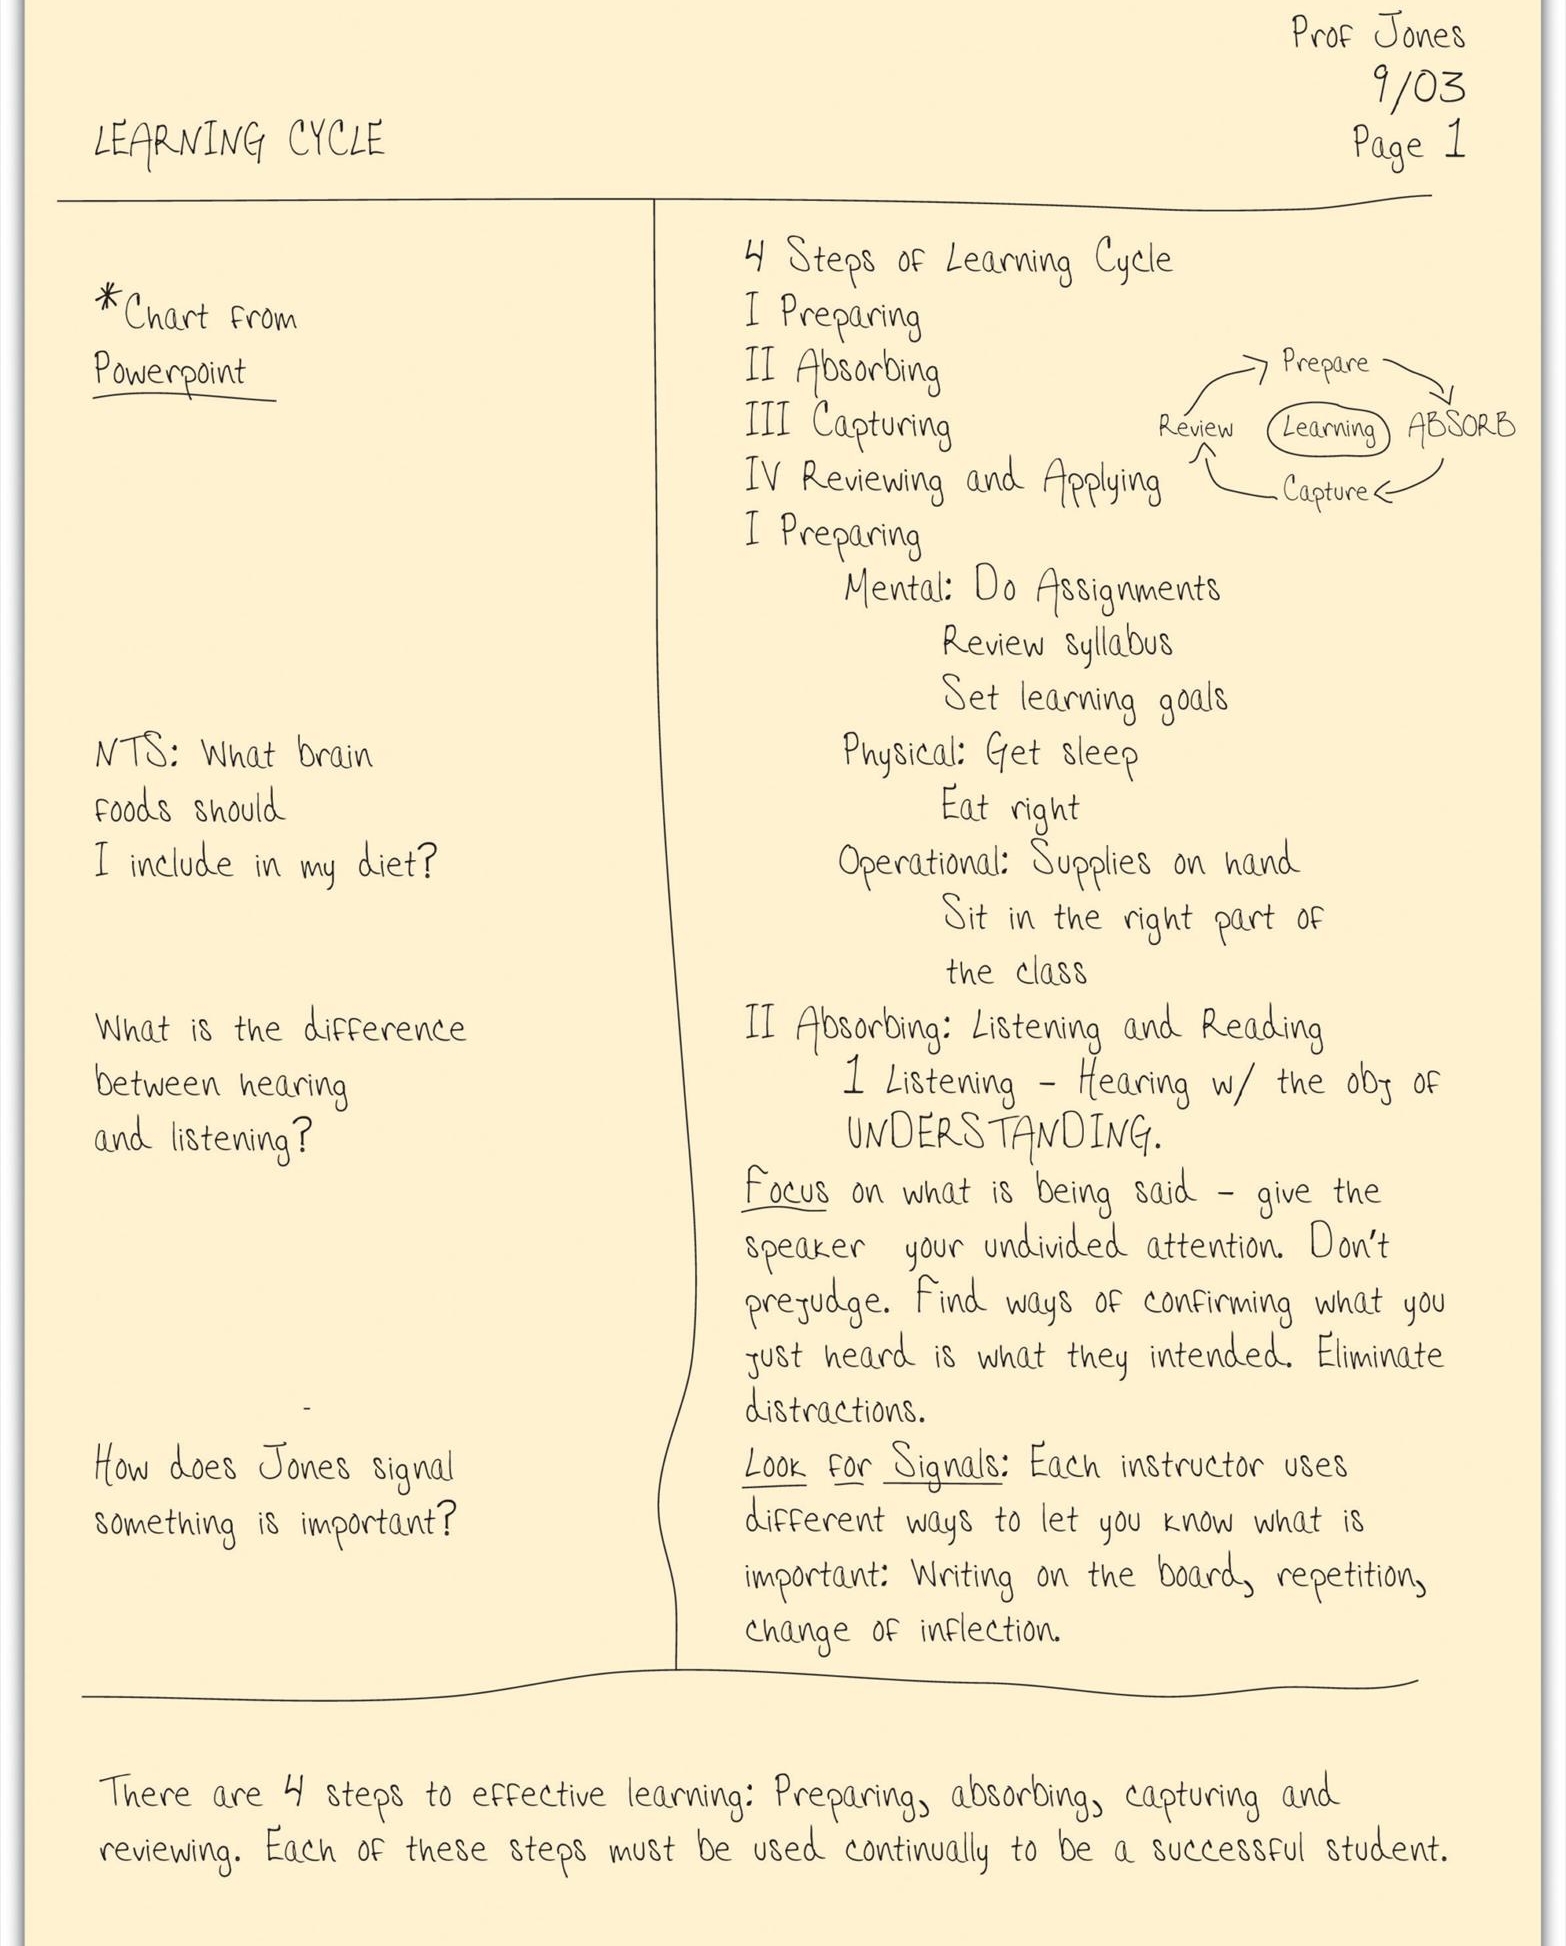 Prof Jones
9/03
Page 1
LEARNING CYCLE
*Chart from
Powerpoint
NTS: What brain
foods should
I include in my diet?
What is the difference
between hearing
and listening?
How does Jones signal
something is important?
4 Steps of Learning Cycle
I Preparing
II Absorbing
III Capturing
IV Reviewing and Applying
Prepare
Review
Learning
ABSORB
Capture
I Preparing
Mental: Do Assignments
Review syllabus
Set learning goals
Physical: Get sleep
Eat right
Operational: Supplies on hand
Sit in the right part of
the class
II Absorbing: Listening and Reading
1 Listening - Hearing w/ the obj of
UNDERSTANDING.
Focus on what is being said - give the
speaker your undivided attention. Don't
prejudge. Find ways of confirming what you
just heard is what they intended. Eliminate
distractions.
Look for Signals: Each instructor uses
different ways to let you know what is
important: Writing on the board, repetition,
change of inflection.
There are 4 steps to effective learning: Preparing, absorbing, capturing and
reviewing. Each of these steps must be used continually to be a successful student.